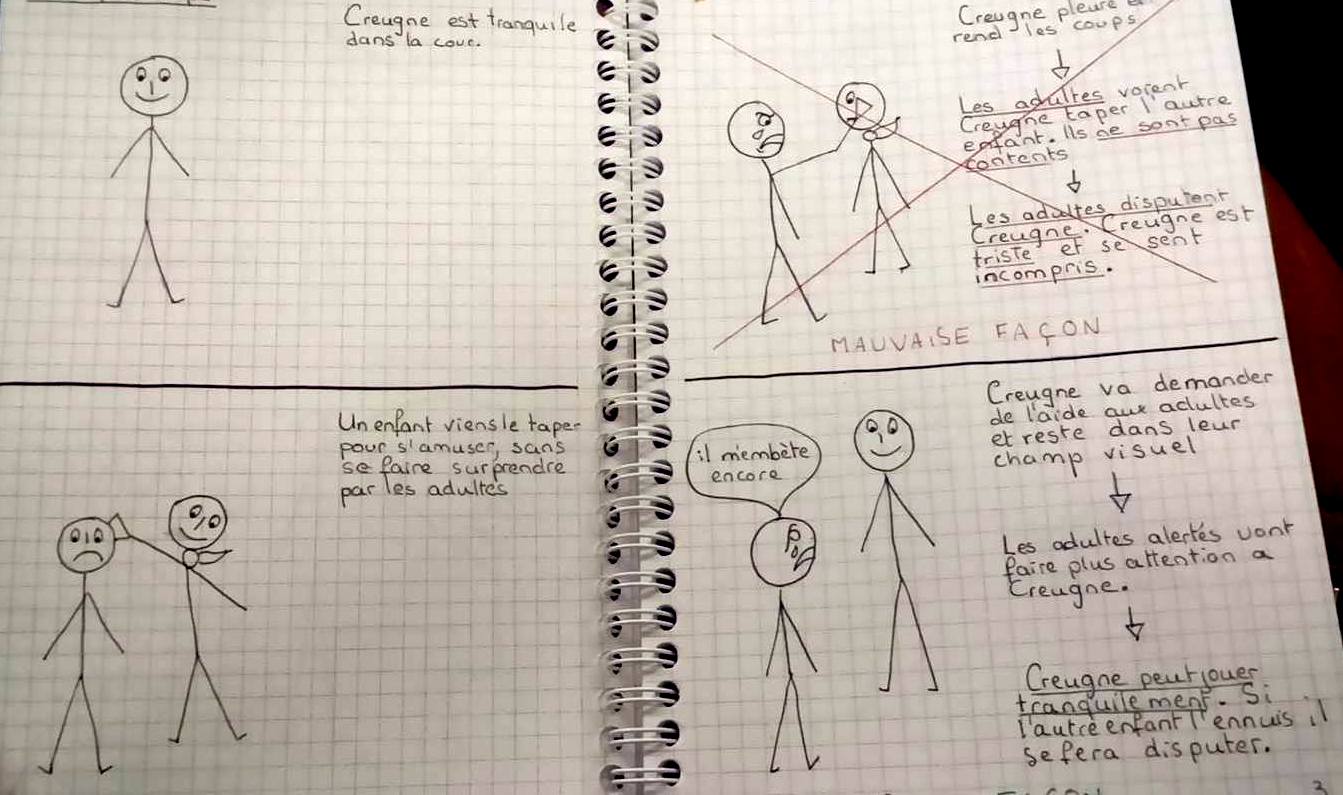 Creugne est tranquile
dans la cour.
Un enfant viens le taper
pour s'amuser, sans
se faire surprendre
par les adultes
Creugne pleure et
rend les coups
Les adultes voient
Creugne taper l'autre
enfant. Ils ne sont pas
contents
Les adultes disputent
Creugne. Creugne est
triste et se sent
incompris.
MAUVAISE FAÇON
il m'embète
encore
Creugne va demander
de l'aide aux adultes
et reste dans leur
champ visuel
Les adultes alertés vont
faire plus attention a
Creugne.
Creugne peut jouer
tranquilement. Si
l'autre enfant l'ennuis il
se fera disputer.
FAÇON
3